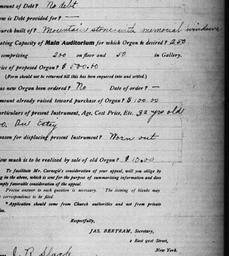 mount of Debt? No debt
me is Debt provided for? —
urch built of? Mountain stone with memorial windows
ating Capacity of Main Auditorium for which Organ is desired? 250
comprising 200 on floor and 50 in Gallery.
rice of proposed Organ? $500.00
(Form should not be returned till this has been inquired into and settled.)
as new Organ been ordered? No Date of order? —
mount already raised toward purchase of Organ? $100.00
articulars of present Instrument, Age, Cost Price, Etc. 32 yrs old
Estey
eason for displacing present Instrument? Worn out
ow much is to be Realized by sale of old Organ? $10.00
To facilitate Mr. Carnegie's consideration of your appeal, will you oblige by
ing in the above, which is sent for the purpose of summarizing information and does
imply favorable consideration of the appeal.
Precise answer to each question is necessary. The issuing of blanks may
correspondence to be filed.
* Application should come from Church authorities and not from private
Respectfully,
JAS. BERTRAM, Secretary,
2 East 91st Street,
New York.
J. R.